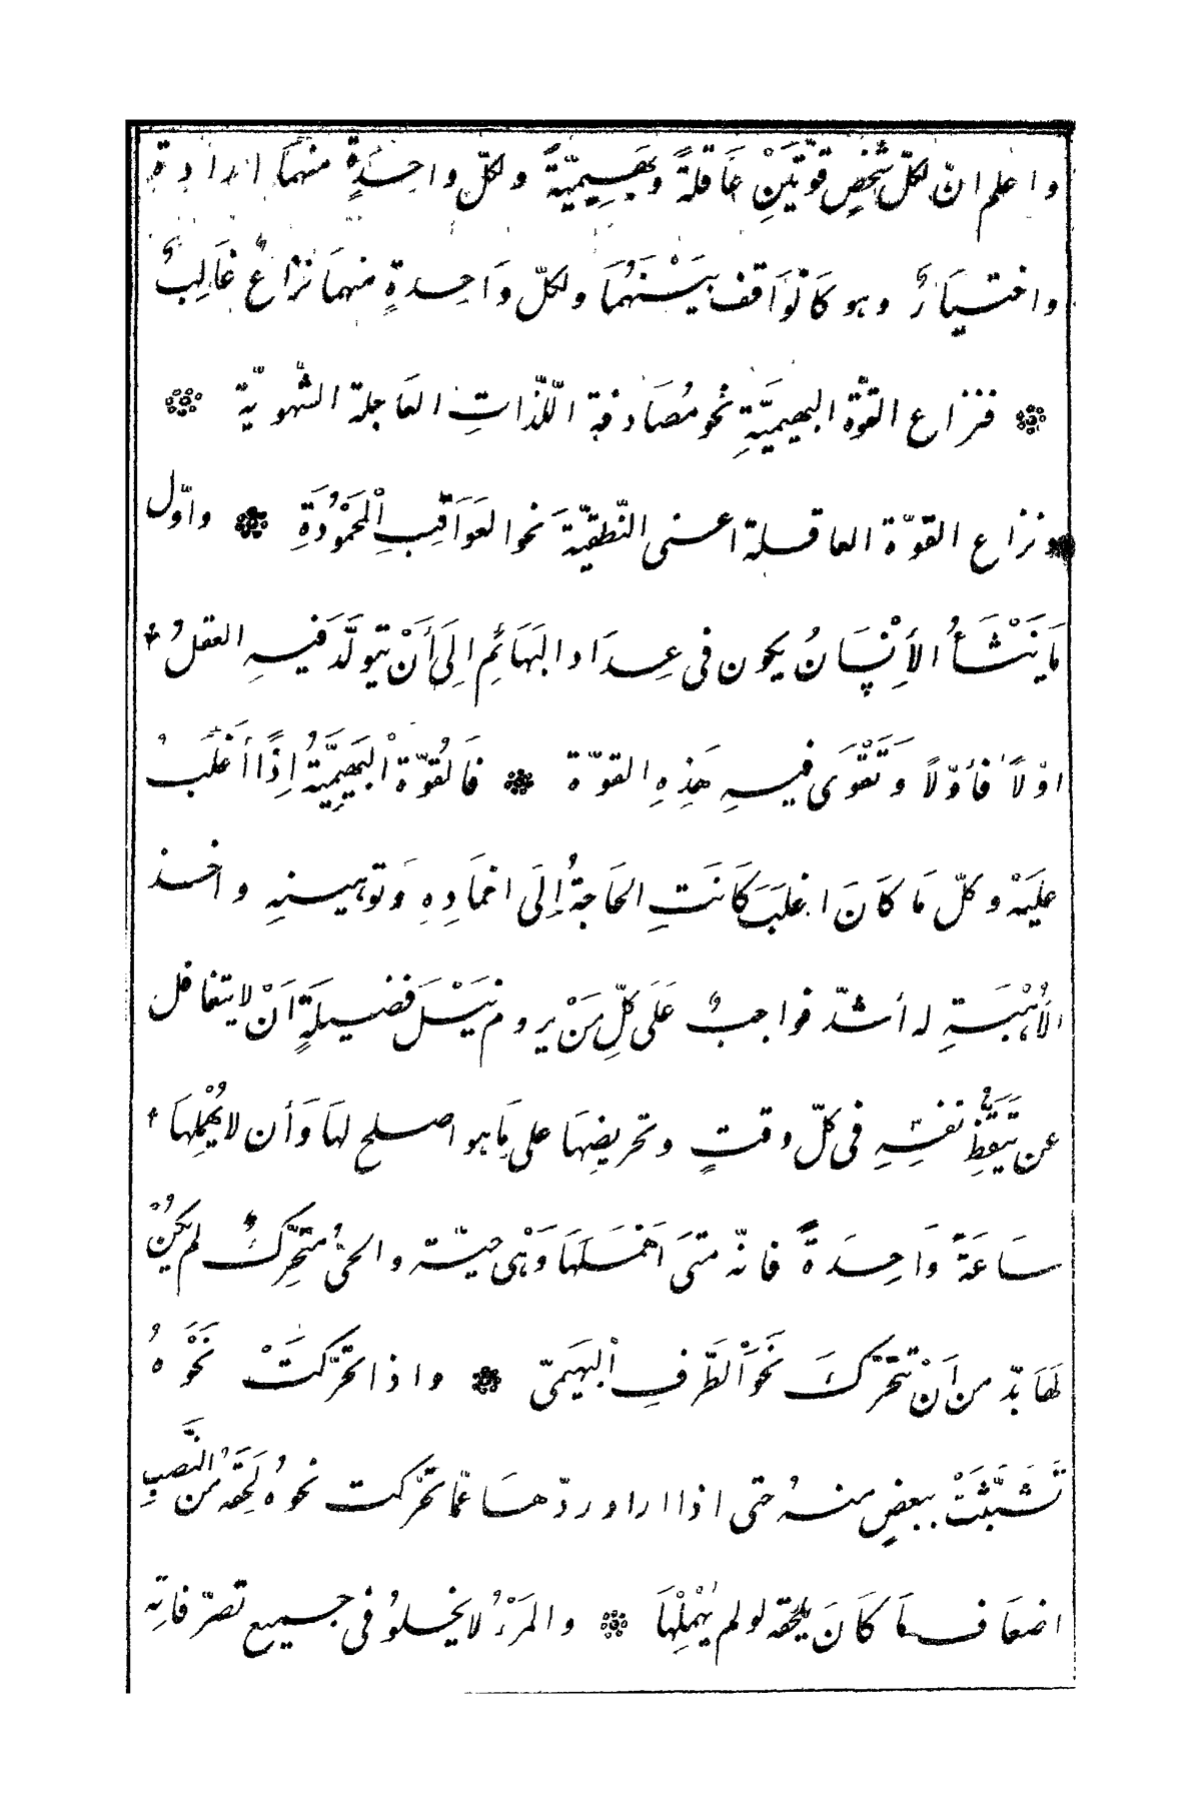 واعلم انّ لكلّ شخصٍ قوّتَيْنِ عَاقلةً وبَهِيميّةً ولكلّ واحِدَةٍ منهمَا ارادة
واختيَارٌ وهو كَالوَاقف بيْنهُمَا ولكلّ وَاحِدةٍ منهمَا نزاعٌ غَالِبٌ
❊ فنزاع القوّة البهيميَّةِ نحو مُصَادفة اللّذّاتِ العَاجلة الشّهويّة ❊
❊ ونزاع القوّة العاقلة اعنى النّطقيّةَ نحوالعَوَاقِبِ الْمَحْمُوْدَةِ ❊ واوّل
مَا يَنْشَأُ الأِنْسَانُ يكون فى عِدَاد البَهَائمِ اِلَى أَنْ يتولَّدَ فيهِ العقلُ
اوّلاً فأوّلاً وَتَقْوَى فيهِ هَذِهِ القوّة ❊ فَالقُوّةُ الْبَهِيمِيَّةُ اِذًا أَغْلَبُ
عليَهْ وكلّ مَا كَانَ اغلَبَ كَانَتِ الحَاجَةُ اِلَى اخمَادِهِ وَتوهينهِ واخذ
الأُهْبَةِ له أشدّ فواجبٌ عَلَى كلِّ مَنْ يروم نَيْلَ فضيلَةٍ اَنْ لا يتغافل
عن تَيَقُّظِ نفسِهِ فى كلّ وقتٍ وتحريضِهَا على مَا هو اصلح لهَا وَأن لا يُهْمِلهَا
سَاعَةً وَاحِدَةً فانّه متىَ اَهْمَلَهَا وَهْى حيّة والحىُّ متحَرِّكٌ لم يكُنْ
لهَا بدّ من اَنْ تتحَرّكَ نَحْوَ الطَّرفِ الْبهَيمىّ ❊ واذا تحَرّكَتْ نَحْوَهُ
تَشَبَّثَتْ ببعضٍ منهُ حتى اذا اراد ردّهَا عمّا تحَرّكت نحوهُ لَحِقَهُ من النَّصَبِ
اضعَاف مَا كَانَ يلحقه لو لم يُهْمِلْهَا ❊ والمَرْءُ لا يخلوُ فى جميع تصرّفاتِه